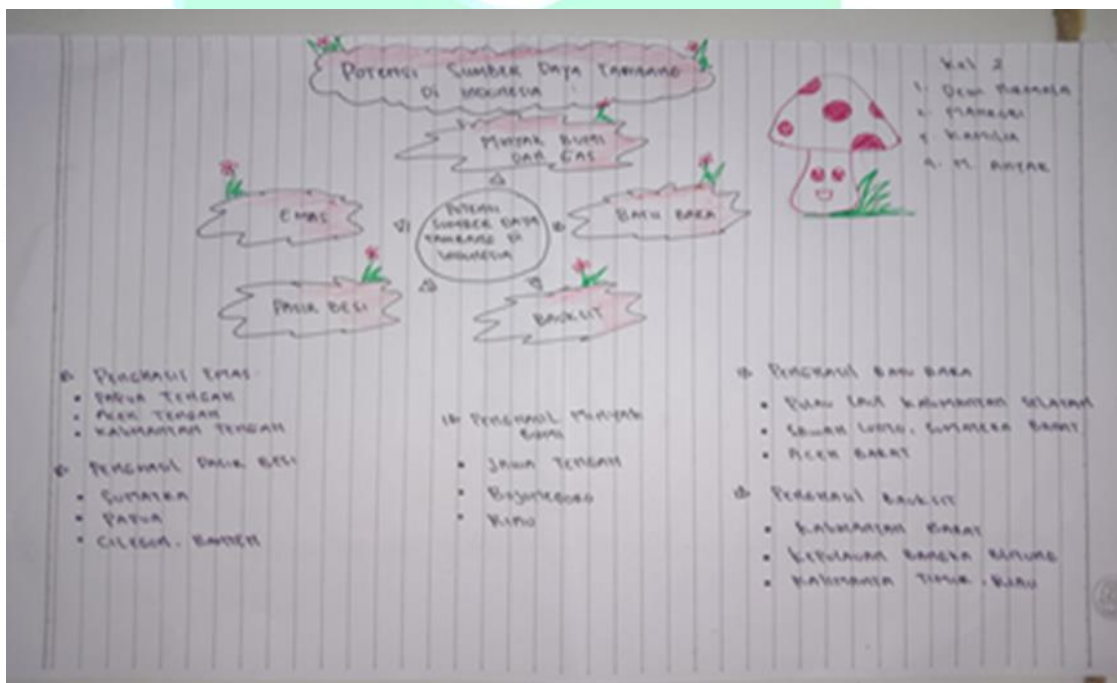 POTENSI SUMBER DAYA TAMBANG
DI INDONESIA
Kel 2
1. Dewi
3. KAMILIA
4. M.
MINYAK BUMI
DAN GAS
EMAS
BATU BARA
POTENSI
SUMBER DAYA
TAMBANG DI
INDONESIA
PASIR BESI
BAUKSIT
PENGHASIL EMAS
• PAPUA TENGAH
• ACEH TENGAH
• KALIMANTAN TENGAH
PENGHASIL PASIR BESI
• SUMATRA
• PAPUA
• CILEGON, BANTEN
PENGHASIL MINYAK
BUMI
• JAWA TENGAH
• BOJONEGORO
• RIAU
PENGHASIL BATU BARA
• PULAU LAUT KALIMANTAN SELATAN
• SAWAH LUNTO, SUMATERA BARAT
• ACEH BARAT
PENGHASIL BAUKSIT
• KALIMANTAN BARAT
• KEPULAUAN BANGKA
• TIMUR, RIAU